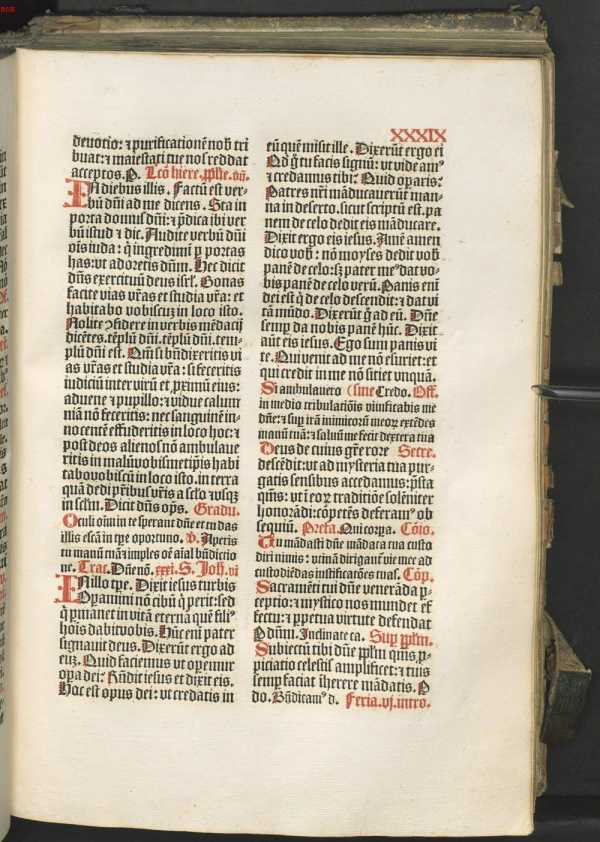 XXXIX
deuotio: ⁊ purificationē nob̄ tri
buat: ⁊ maiestati tue nos reddat
acceptos. P. Lcō hiere. p̄phe. vij.
IN diebus illis. Factū est ver-
bū dn̄i ad me dicens. Sta in
porta domus dn̄i: ⁊ p̄dica ibi ver
bū istud ⁊ dic. Audite verbū dn̄i
oīs iuda: q̇ ingredimī ꝑ portas
has: vt adoretis dn̄m. Hec dicit
dn̄s exercituū deus isrl̄. Bonas
facite vias vr̄as et studia vr̄a: et
habitabo vobiscū in loco isto.
Nolite ꝯfidere in verbis mēdacij
dicētes. tēplū dn̄i. tēplū dn̄i. tem-
plū dn̄i est. Qm̄ si bn̄ dixeritis vi
as vr̄as et studia vr̄a: si feceritis
iudiciū inter virū et ꝓximū eius:
aduene ⁊ pupillo: ⁊ vidue calum
niā nō feceritis: nec sanguinē in-
nocentē effuderitis in loco hoc: ⁊
post deos alienos nō ambulaue
ritis in malū vobismetip̄is habi
tabo vobiscū in loco isto. in terra
quā dedi pr̄ibus vr̄is a sc̄lo vsqꝫ
in sc̄lm. Dicit dn̄s op̄s. Gradu.
Oculi oīm in te sperant dn̄e et tu das
illis escā in tꝑe oportuno. v. Aperis
tu manū tuā ⁊ imples oē aīal bn̄dictio
ne. Trac. Dn̄e nō. xxxi. S. Joh. vi
IN illo tꝑe. Dixit iesus turbis
Opamini nō cibū q̇ perit: sed
q̇ ꝑmanet in vitā eternā quē filiꝰ
hoīs dabit vobis. Hūc enī pater
signauit deus. Dixerūt ergo ad
eūꝫ. Quid faciemus vt oꝑemur
opa dei: Rn̄dit iesus et dixit eis.
Hoc est opus dei: vt credatis in
eū quē misit ille. Dixerūt ergo ei
Qd̄ g̊ tu facis signū: vt videamꝰ
⁊ credamus tibi: Quid oꝑaris:
Patres nr̄i māducauerūt man-
na in deserto. sicut scriptū est. pa
nem de celo dedit eis māducare.
Dixit ergo eis iesus. Amē amen
dico vob̄: nō moyses dedit vob̄
panē de celo: sꝫ pater meꝰ dat vo-
bis panē de celo verū. Panis enī
dei est q̇ de celo descendit: ⁊ dat vi
tā mūdo. Dixerūt g̊ ad eū. Dn̄e
semꝑ da nobis panē hūc. Dixit
aūt eis iesus. Ego sum panis vi
te. Qui venit ad me nō esuriet: et
qui credit in me nō sitiet vnquā.
Si ambulauero (sine Credo. Off.
in medio tribulatiōis viuificabis me
dn̄e: ⁊ suꝑ irā inimicoꝝ meoꝝ extēdes
manū tuā: ⁊ saluū me fecit dextera tua
Deus de cuius gr̄e rore Secre.
descēdit: vt ad mysteria tua pur-
gatis sensibus accedamus: p̄sta
qm̄s: vt ī eoꝝ traditiōe solēniter
honorādi: cōpetēs deferamꝰ ob
sequiū. Prefa. Qui corꝑa. Cōio.
Tu mādasti dn̄e mādata tua custo
diri nimis: vtinā dirigant̄ vie mee ad
custodiēdas iustificatōes tuas. Cōp̄.
Sacramēti tui dn̄e venerāda ꝑ-
ceptio: ⁊ mystico nos mundet ef
fectu: ⁊ ꝑpetua virtute defendat
P dn̄m. Inclinate ca. Suꝑ pp̄lm.
Subiectū tibi dn̄e pp̄lm qm̄s ꝓ-
piciatio celestis amplificet: ⁊ tuis
semꝑ faciat īherere mādatis. P
do. Bn̄dicamꝰ d. Feria. vj. intro.